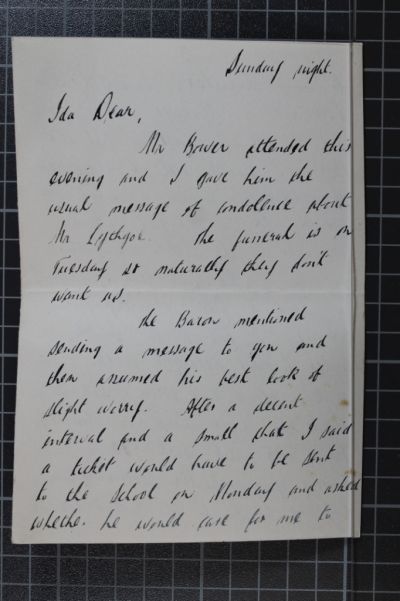 Sunday night.
Ida Dear,
Mr Bower attended this
evening and I gave him the
usual message of condolence about
Mr Lythgoe. The funeral is on
Tuesday so naturally they don't
want us.
The Baron mentioned
sending a message to you and
then assumed his best look of
slight worry. After a decent
interval and a small chat I said
a ticket would have to be sent
to the School on Monday and asked
whether he would care for me to